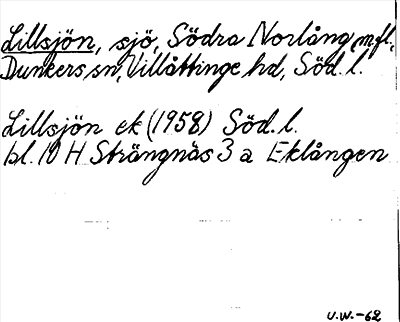 Lillsjön, sjö, Södra Norlång mfl,
Dunkers sn, Villåttinge hd, Söd. l.
Lillsjön ek (1958) Söd. l.
bl. 10 H Strängnäs 3 a Eklången
U.W.-62